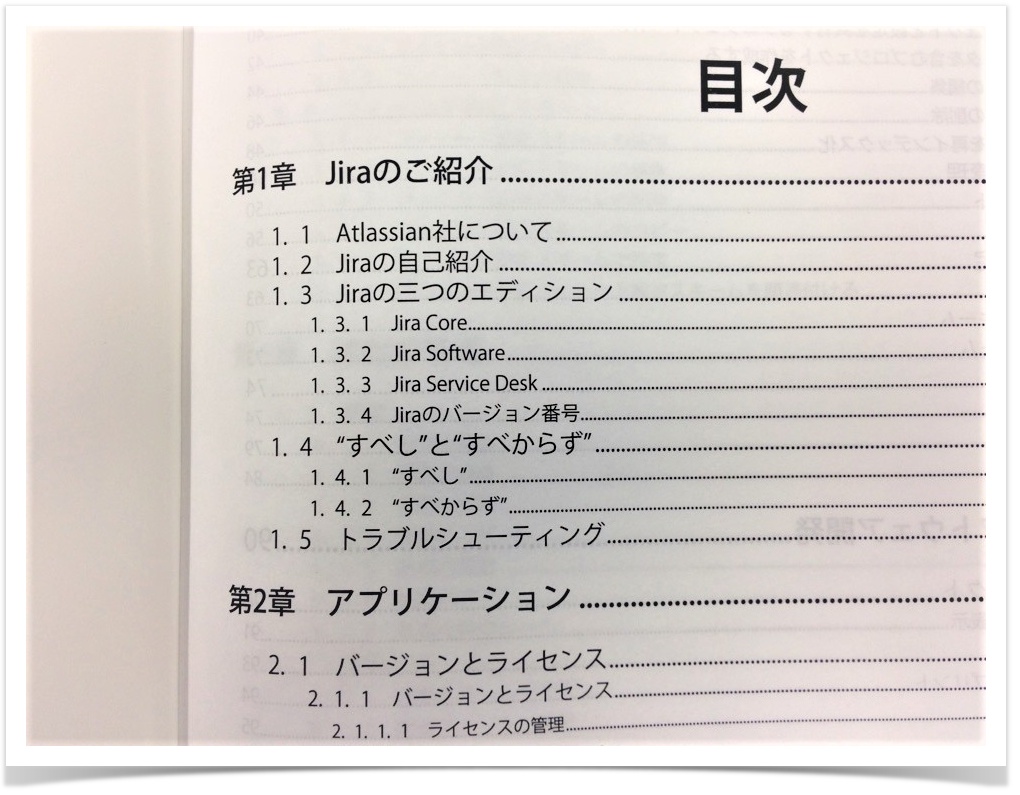 目次
第1章 Jiraのご紹介
1. 1 Atlassian社について
1. 2 Jiraの自己紹介
1. 3 Jiraの三つのエディション
1. 3. 1 Jira Core
1. 3. 2 Jira Software
1. 3. 3 Jira Service Desk
1. 3. 4 Jiraのバージョン番号
1. 4 “すべし”と“すべからず”
1. 4. 1 “すべし”
1. 4. 2 “すべからず”
1. 5 トラブルシューティング
第2章 アプリケーション
2. 1 バージョンとライセンス
2. 1. 1 バージョンとライセンス
2. 1. 1. 1 ライセンスの管理